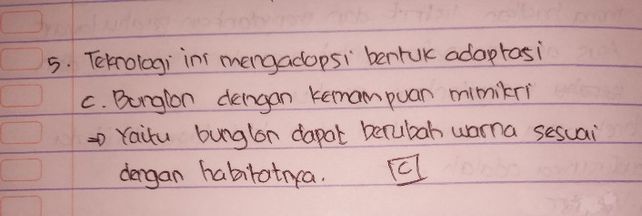 5. Teknologi ini mengadopsi bentuk adaptasi
c. Bunglon dengan kemampuan mimikri
⇒ Yaitu bunglon dapat berubah warna sesuai
dengan habitatnya. [C]